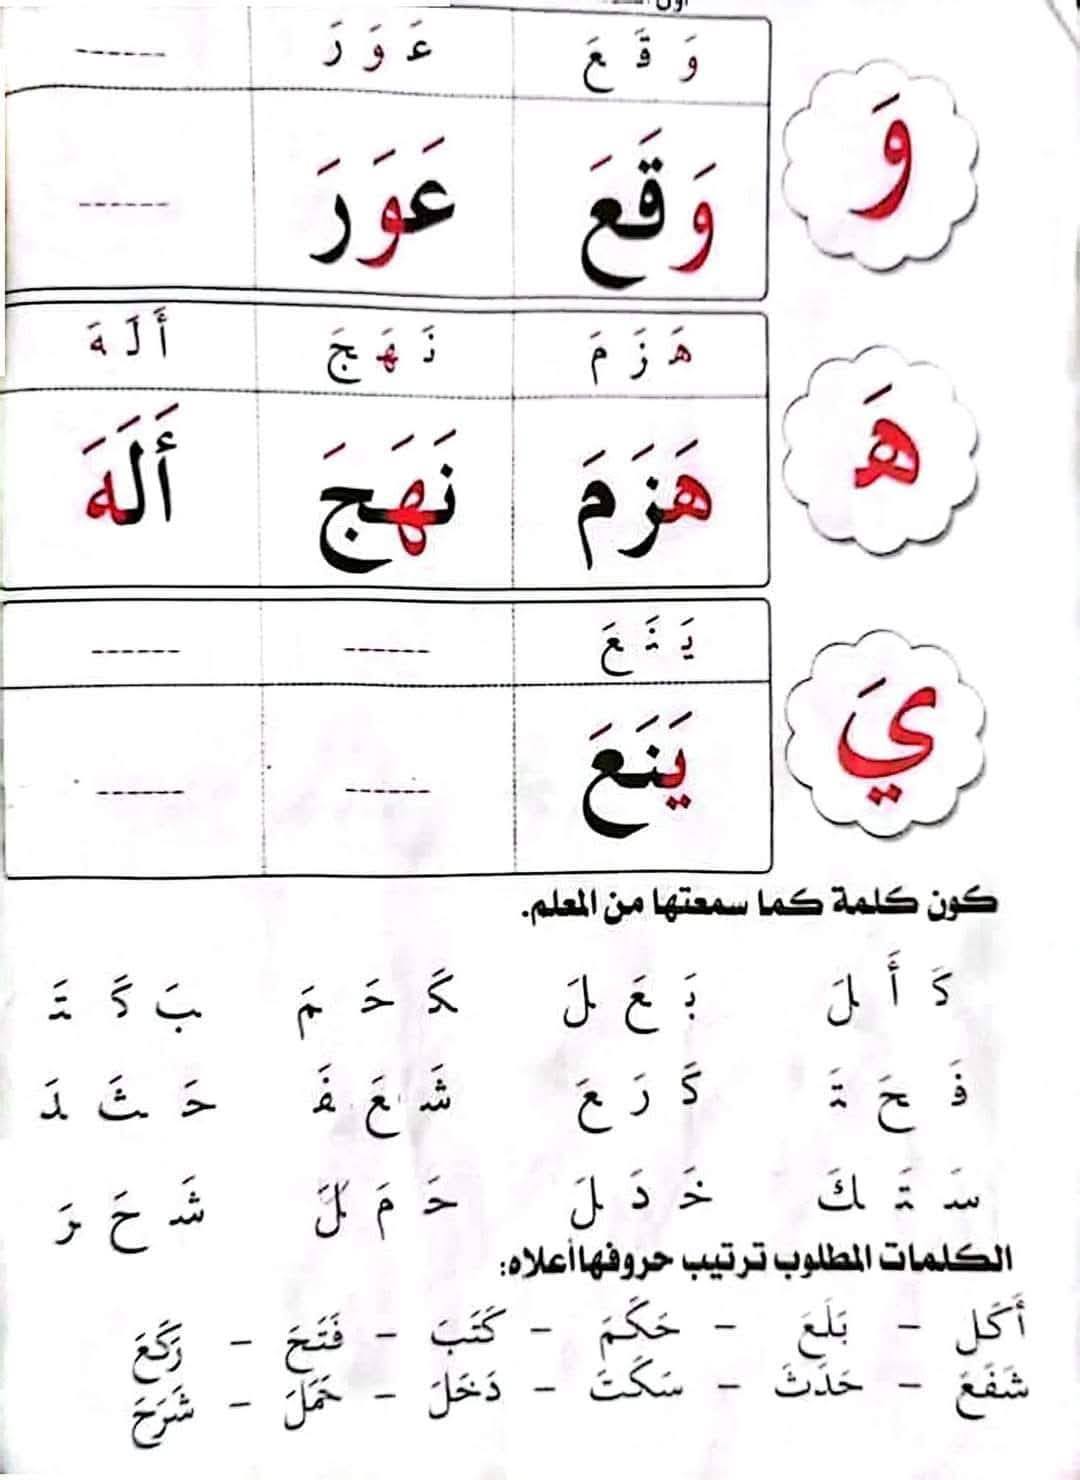 وَ
وَ قَ عَ عَ وَ رَ ------
وَقَعَ عَوَرَ ------
هَ
هَ زَ مَ نَ هَ جَ أَ لَ هَ
هَزَمَ نَهَجَ أَلَهَ
يَ
يَ نَ عَ ------ ------
يَنَعَ ------ ------
كون كلمة كما سمعتها من المعلم.
كَ أَ لَ بَ عَ لَ كَ حَ مَ بَ كَ تَ
فَ حَ تَ كَ رَ عَ شَ عَ فَ حَ ثَ دَ
سَ تَ كَ خَ دَ لَ حَ مَ لَ شَ حَ رَ
الكلمات المطلوب ترتيب حروفها أعلاه:
أَكَل - بَلَعَ - حَكَمَ - كَتَبَ - فَتَحَ - رَكَعَ
شَفَعَ - حَدَثَ - سَكَتَ - دَخَلَ - حَمَلَ - شَرَحَ